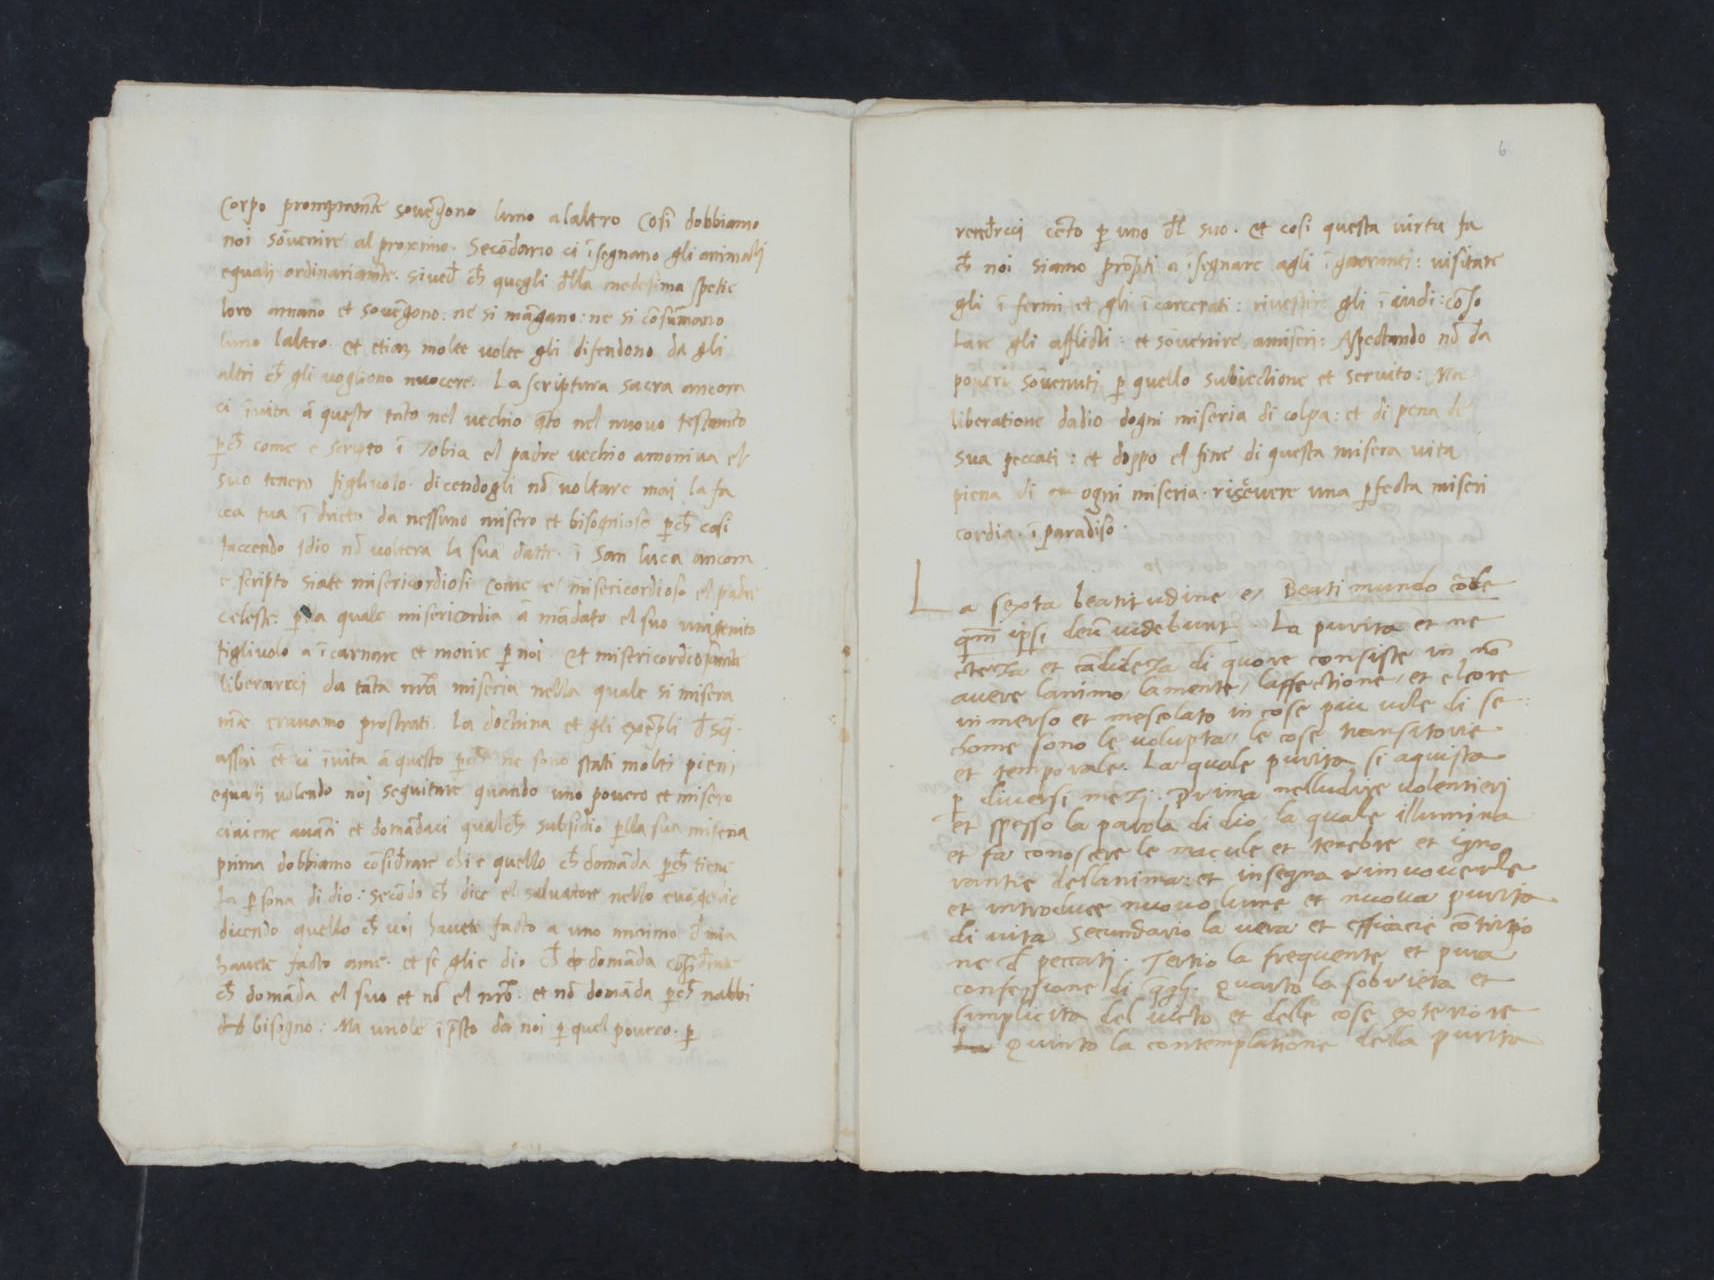 corpo promptam̃te sovẽgono luno alaltro Cosi dobbiamo
noi sõvenire al proximo. Secõdario ci ĩsegnano gli animali
equali ordinariam̃te. si ved̃ ch̃ quegli d̃lla medesima spetie
loro amano et sovẽgono: ne si mãgano: ne si cõsumano
luno laltro. et etiaz molte volte gli difendono da gli
altri ch̃ gli vogliono nuocere. La scriptura sacra ancora
ci ĩvita ã questo tãto nel vechio q̃to nel nuovo testam̃to
p̃ch̃ come e scripto ĩ Tobia el padre vechio amoniva el
suo tenero figlivolo. dicendogli nõ voltare mai la fa
cia tua ĩ drieto da nessuno misero et bisognioso p̃ch̃ cosi
faccendo Idio nõ voltera la sua da tte. ĩ San luca ancora
e scripto siate misericordiosi come e misericordioso el padre
celeste: p̱ la quale misericordia ã mãdato el suo unigenito
figlivolo a ĩcarnare et morire p̱ noi et misericordiosam̃te
liberarcci da tãta nr̃a miseria nella quale si misera
m̃te eravamo prostrati. La doctrina et gli exẽpli d̃ scj̃.
assai ẽt ci ĩvita ã questo p̃ch̃ ne sono stati molti pieni
equali volendo noi seguitare quando uno povero et misero
ciaiene avãti et domãdaci qualch̃ subsidio p̱lla sua miseria
prima dobbiamo cõsid̃rare chi e quello ch̃ domãda p̃ch̃ tiene
la p̱sona di dio: secõdo ch̃ dice el salvatore nello evãgelio
dicendo quello ch̃ voi havete facto a uno minimo d̃ mia
havete facto ame. et se glie dio ch̃ domãda cõsid̃rare
ch̃ domãda el suo et nõ el nr̃o. et nõ domãda p̃ch̃ nabbi
bisogno: Ma vuole ĩ p̃sto da noi p̱ quel povero. p̱
6
rend̃rcci cẽto p̱ uno d̃l suo. et cosi questa virtu fa
ch̃ noi siamo prõpti a ĩsegnare agli ĩgnoranti: visitare
gli ĩfermi et gli ĩcarcerati: rivestire gli ĩudi: cõso
lare gli afflicti: et sõvenire amiseri: Aspectando nõ da
poveri sõvenuti p̱ quello subiectione et servito: Ma
liberatione dadio dogni miseria di colpa: et di pena de
sua peccati: et doppo el fine di questa misera vita
piena di ogni miseria. ricevere una p̱fecta miseri
cordia. ĩ paradiso.
La sexta beatitudine e/ Beati mundo corde
qm̃ ipsi deũ videbunt. La purita et ne
cteza et cãdideza di quore consiste in nõ
avere lanimo/ lamente/ laffectione/ et elcore
inmerso et mescolato in cose piu vile di se
chome sono le volupta/ le cose transitorie
et temporale. La quale purita si aquista
p̱ diversi mezi. Prima nelludire volentieri
et spesso la parola di dio la quale illumina
et fa conoscere le macule et tenebre et igno
rantie dellanima: et insegna rimuoverle
et introduce nuovo lume et nuova purita
di vita Secundario la vera et efficacie cõtritio
ne d̃ peccati. Tertio la frequente et pura
confessione di q̃gli. Quarto la sobrieta et
simplicita del victo et delle cose exteriore
Quinto la contemplatione della purita